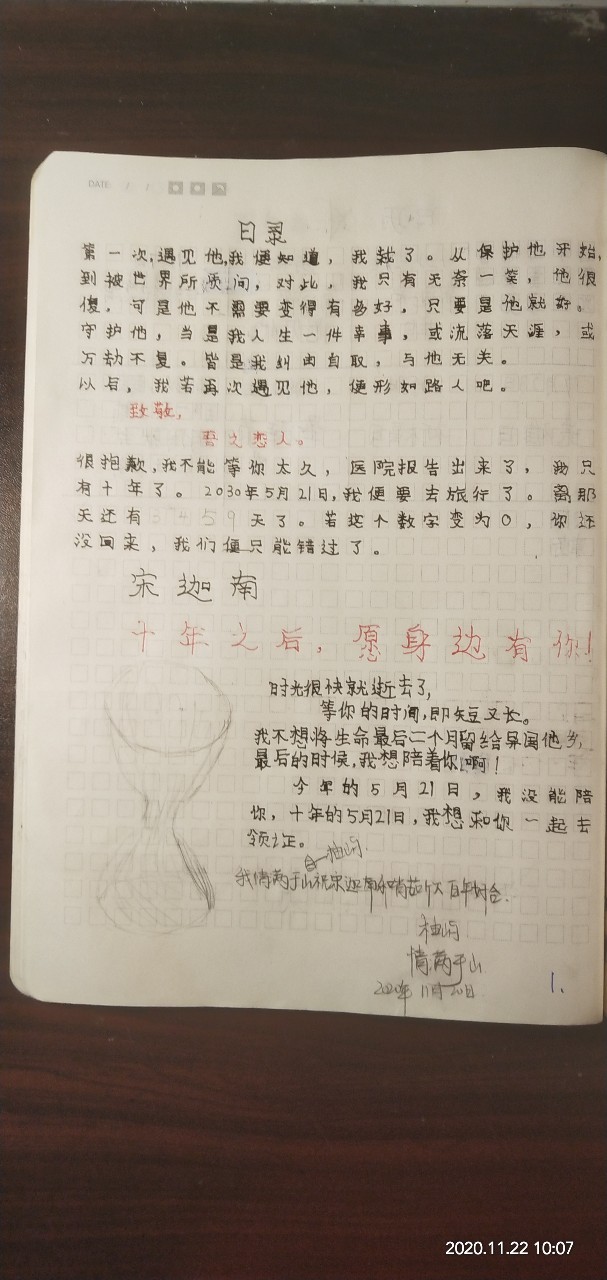 DATE: / /
目录
第一次,遇见他,我便知道，我就了。从保护他开始,
到被世界所质问，对此，我只有无奈一笑，他很
傻，可是他不需要变得有多好，只要是他就好。
守护他，当是我人生一件幸事，或流落天涯，或
万劫不复。皆是我纠由自取，与他无关。
以后，我若再次遇见他，便形如路人吧。
致敬,
吾之恋人。
很抱歉,我不能等你太久，医院报告出来了，我只
有十年了。2030年5月21日,我便要去旅行了。离那
天还有3459天了。若这个数字变为0，你还
没回来，我们便只能错过了。
宋迦南
十年之后，愿身边有你!
时光很快就逝去了,
等你的时间,即短又长。
我不想将生命最后二个月留给异国他乡,
最后的时候,我想陪着你啊!
今年的5月21日，我没能陪
你，十年的5月21日,我想和你一起去
领证。
2020年11月20日
1.
2020.11.22 10:07